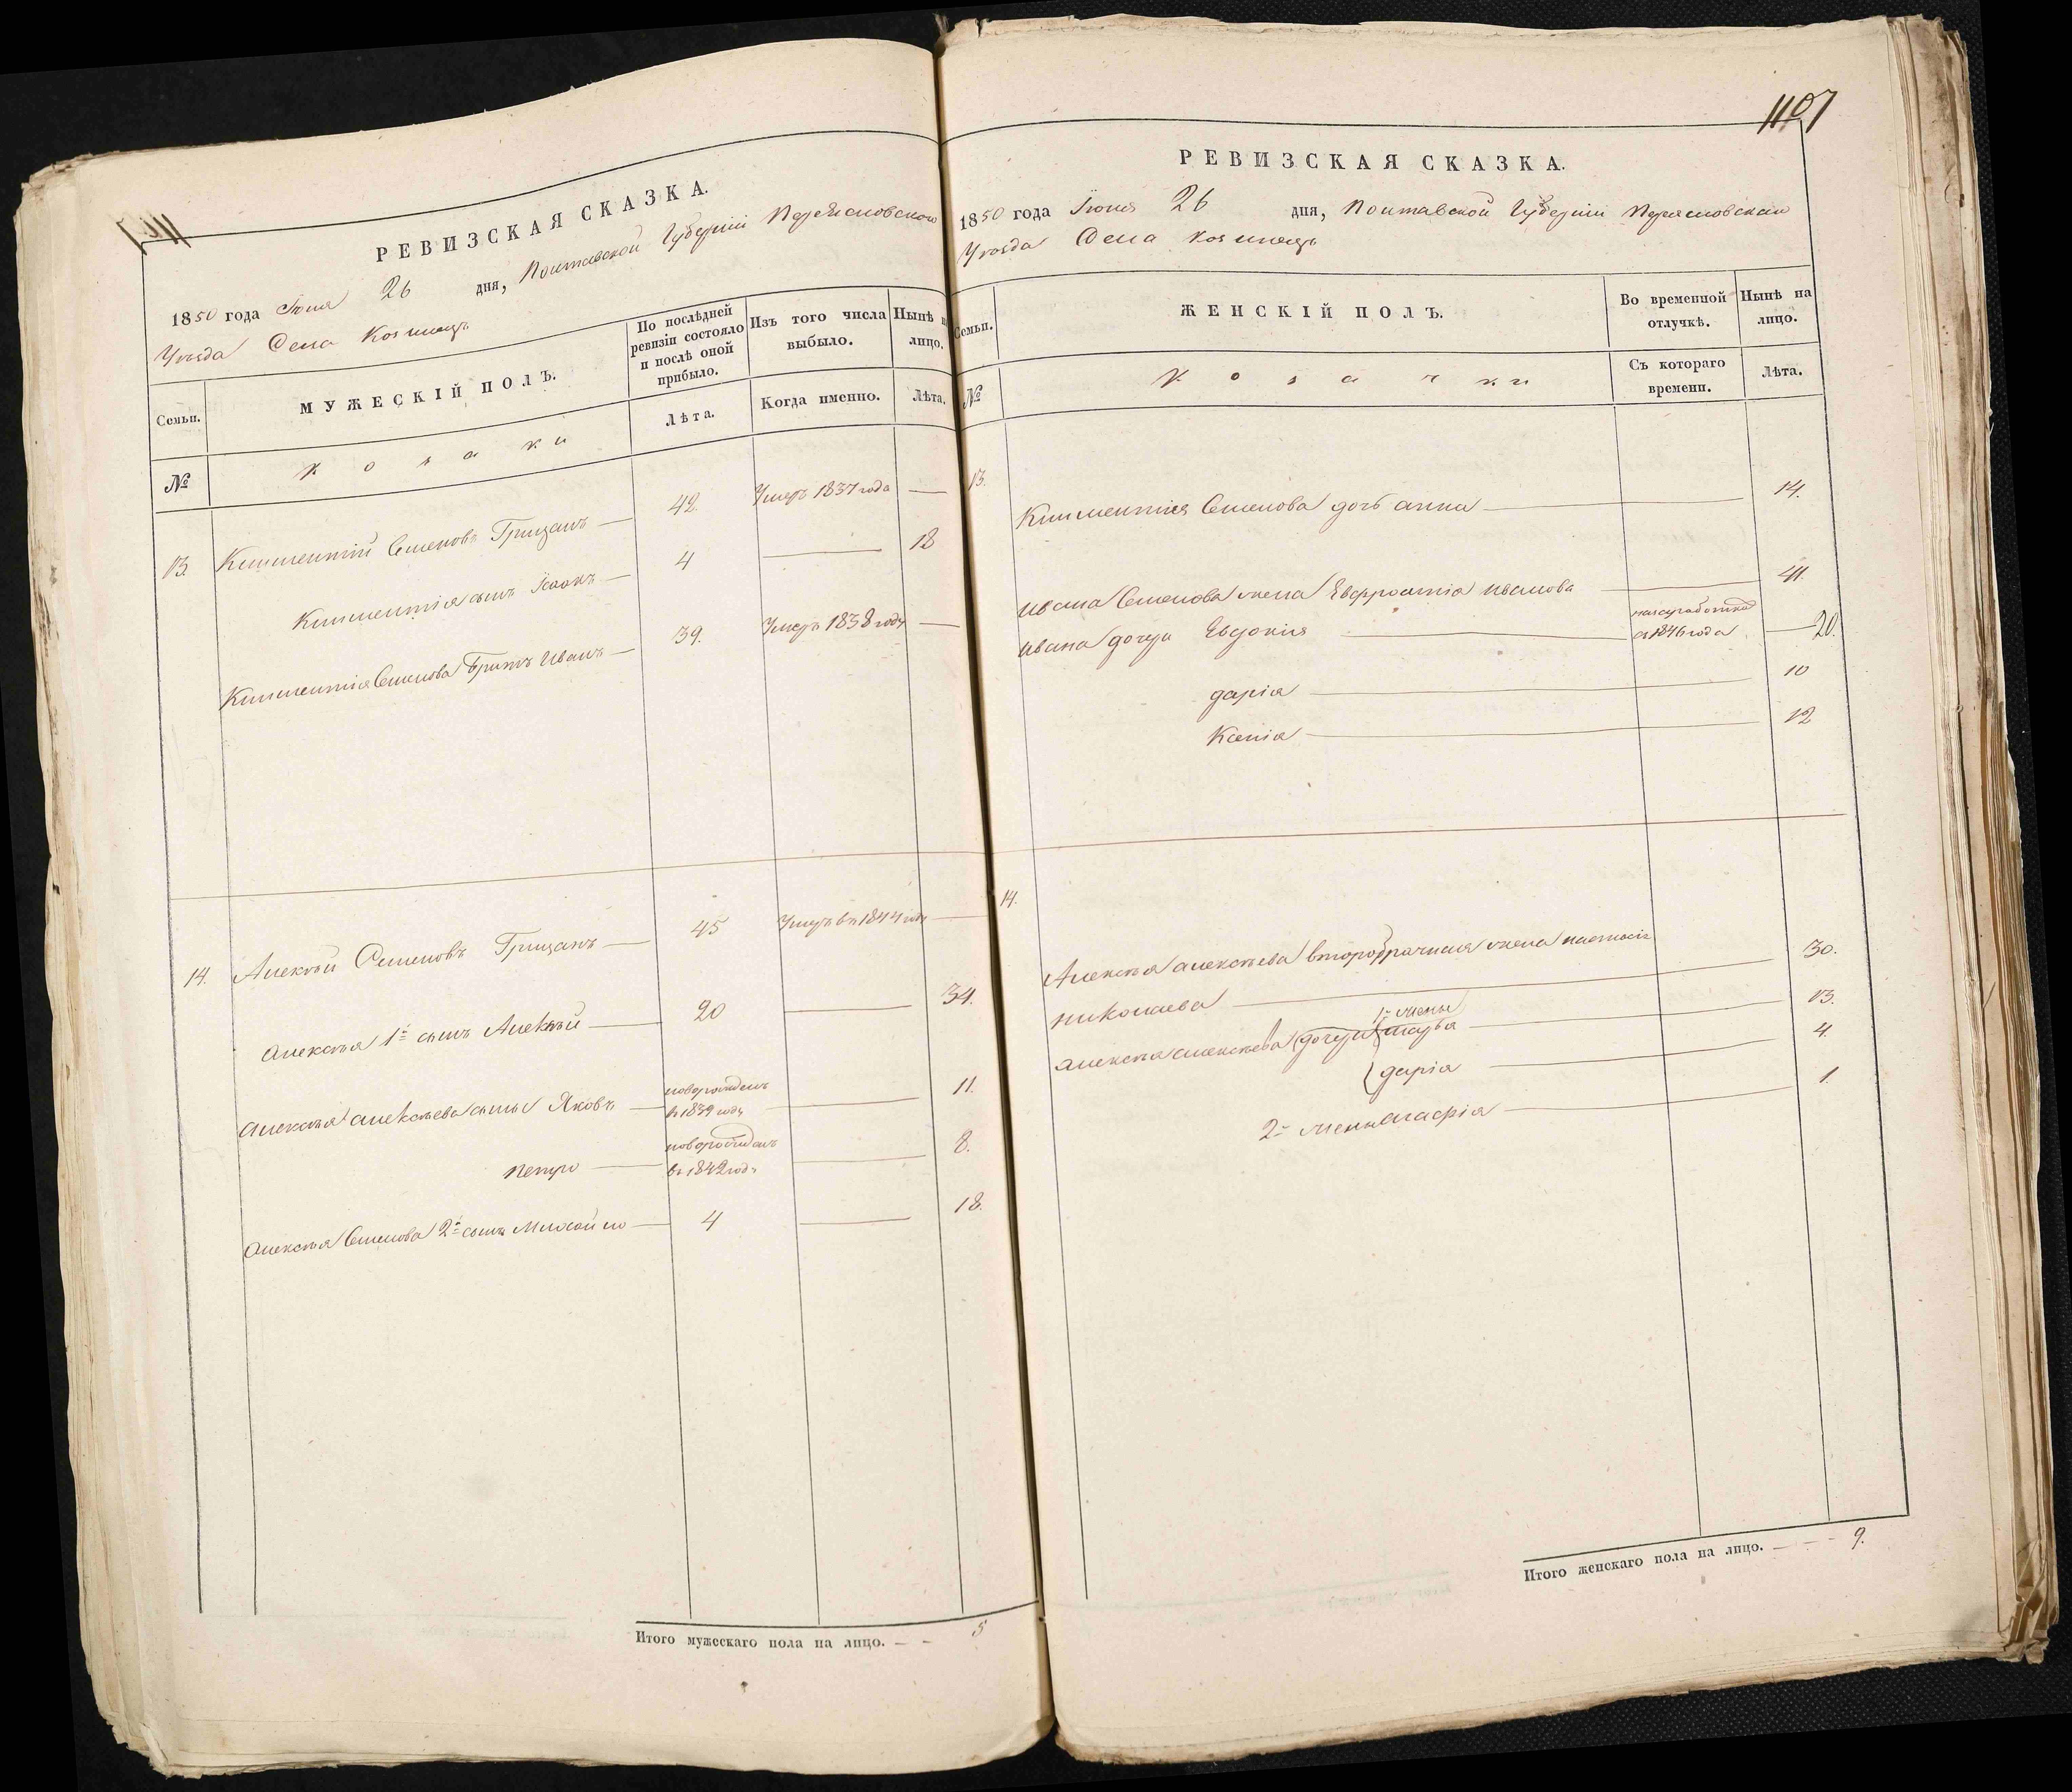 РЕВИЗСКАЯ СКАЗКА.
1850 года Іюня 26 дня, Полтавской Губерніи Переясловского
Уѣзда Села Козинецъ
Семьи.
МУЖЕСКІЙ ПОЛЪ.
По послѣдней ревизіи состояло и послѣ оной прибыло.
Изъ того числа выбыло.
Нынѣ на лицо.
№
Козаки
Лѣта.
Когда именно.
Лѣта.
13. Климентій Семеновъ Грицанъ 42. Умеръ 1837 года
Климентія сынъ Исаакъ 4 18
Климентія Семенова братъ Иванъ 39. Умеръ 1838 году
14. Алексѣй Семеновъ Грицанъ 45 Умеръ въ 1844 году
Алексѣя 1й сынъ Алексѣй 20 34.
Алексѣя Алексѣева сыны Яковъ новорожденъ въ 1839 году 11.
Петро новорожденъ въ 1842 году 8.
Алексѣя Семенова 2й сынъ Михайло 4 18.
Итого мужескаго пола на лицо. 5
1107
РЕВИЗСКАЯ СКАЗКА.
1850 года Іюня 26 дня, Полтавской Губерніи Переясловскаго
Уѣзда Села Козинецъ
Семьи.
ЖЕНСКІЙ ПОЛЪ.
Во временной отлучкѣ.
Нынѣ на лицо.
№
Козачки
Съ котораго времени.
Лѣта.
13. Климентія Семенова дочь Анна 14.
Ивана Семенова жена Евфросинія Иванова 41.
Ивана дочери Евдокия на заработкахъ съ 1846 года 20.
Дарія 10
Ксенія 12
14.
Алексѣя Алексѣева второбрачная жена Настасія
Николаева 30.
Алексѣя Алексѣева дочери 1й жены Марѳа 13.
Дарія 4.
2й жены Агафія 1.
Итого женскаго пола на лицо. 9.